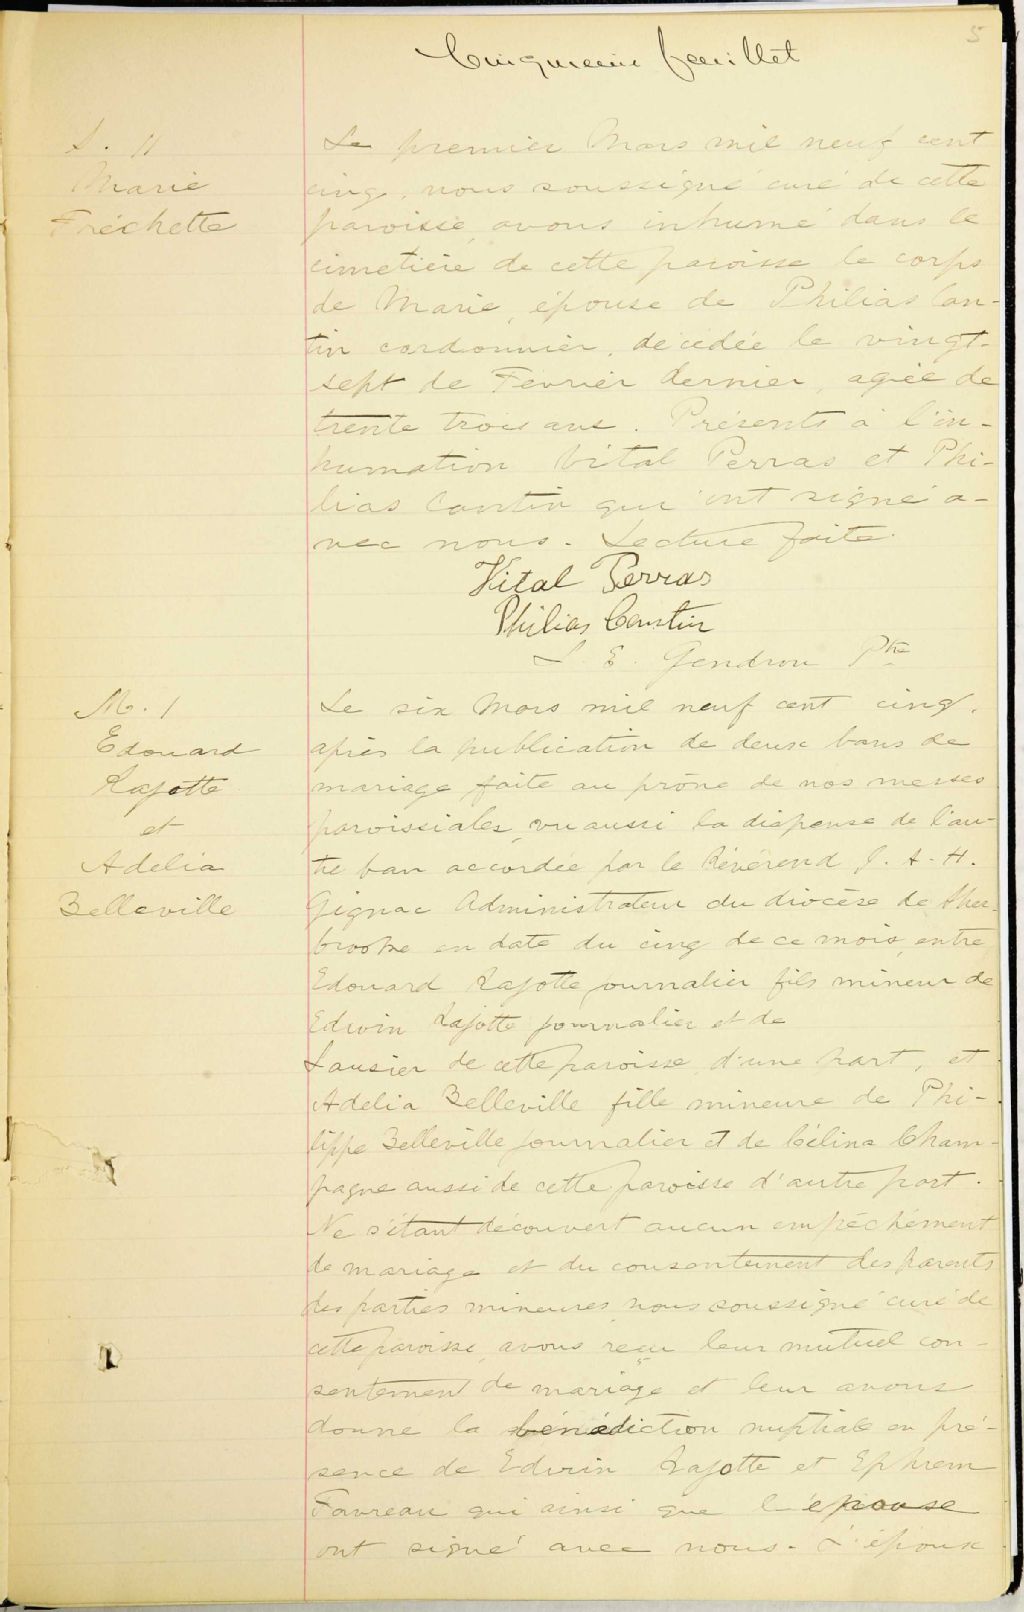 5
Cinquième feuillet
S. 11
Marie
Fréchette
Le premier Mars mil neuf cent
cinq, nous soussigné curé de cette
paroisse, avons inhumé dans le
cimetière de cette paroisse le corps
de Marie, épouse de Philias Can-
tin cordonnier, décédée le vingt-
sept de Février dernier, agée de
trente trois ans. Présents à l'in-
humation Vital Perras et Phi-
lias Cantin qui ont signé a-
vec nous. Lecture faite.
Vital Perras
Philias Cantin
L. E. Gendron Ptre
M. 1
Edouard
Lajotte
et
Adelia
Belleville
Le six Mars mil neuf cent cinq,
après la publication de deux bans de
mariage faite au prône de nos messes
paroissiales, vu aussi la dispense de l'au-
tre ban accordée par le Révérend J. A. H.
Gignac Administrateur du diocèse de Sher-
brooke en date du cinq de ce mois, entre
Edouard Lajotte journalier fils mineur de
Edwin Lajotte journalier et de
Lausier de cette paroisse, d'une part, et
Adelia Belleville fille mineure de Phi-
lippe Belleville journalier et de Célina Cham-
pagne aussi de cette paroisse d'autre part.
Ne s'étant découvert aucun empêchement
de mariage et du consentement des parents
des parties mineures nous soussigné curé de
cette paroisse, avons reçu leur mutuel con-
sentement de mariage et leur avons
donné la bénédiction nuptiale en pré-
sence de Edwin Lajotte et Ephrem
Favreau qui ainsi que l'épouse
ont signé avec nous. L'époux